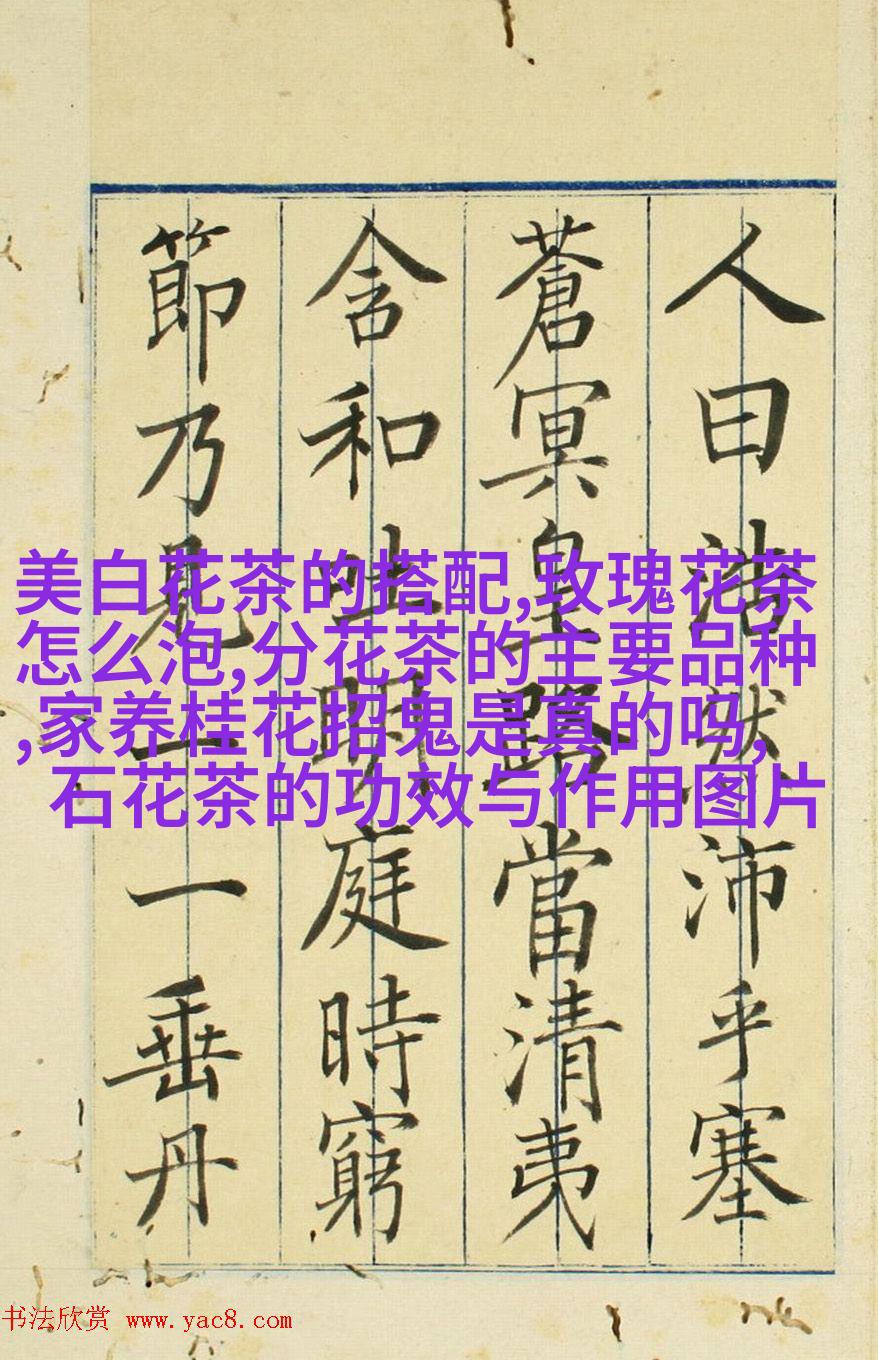 人曰浩然沛乎塞
蒼冥皇路當清夷
含和吐明庭時窮
節乃見一一垂丹
美白花茶的搭配,玫瑰花茶
怎么泡,分花茶的主要品种
,家养桂花招鬼是真的吗,
石花茶的功效与作用图片
书法欣赏 www.yac8.com